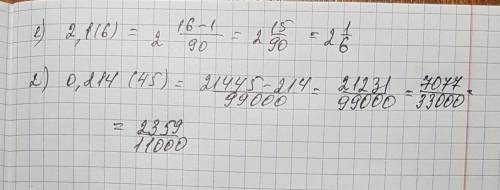 1) 2,1(6) = 2 16-1/90 = 2 15/90 = 2 1/6
2) 0,214 (45) = 21445-214/99000 = 21231/99000 = 7077/33000 =
= 2359/11000